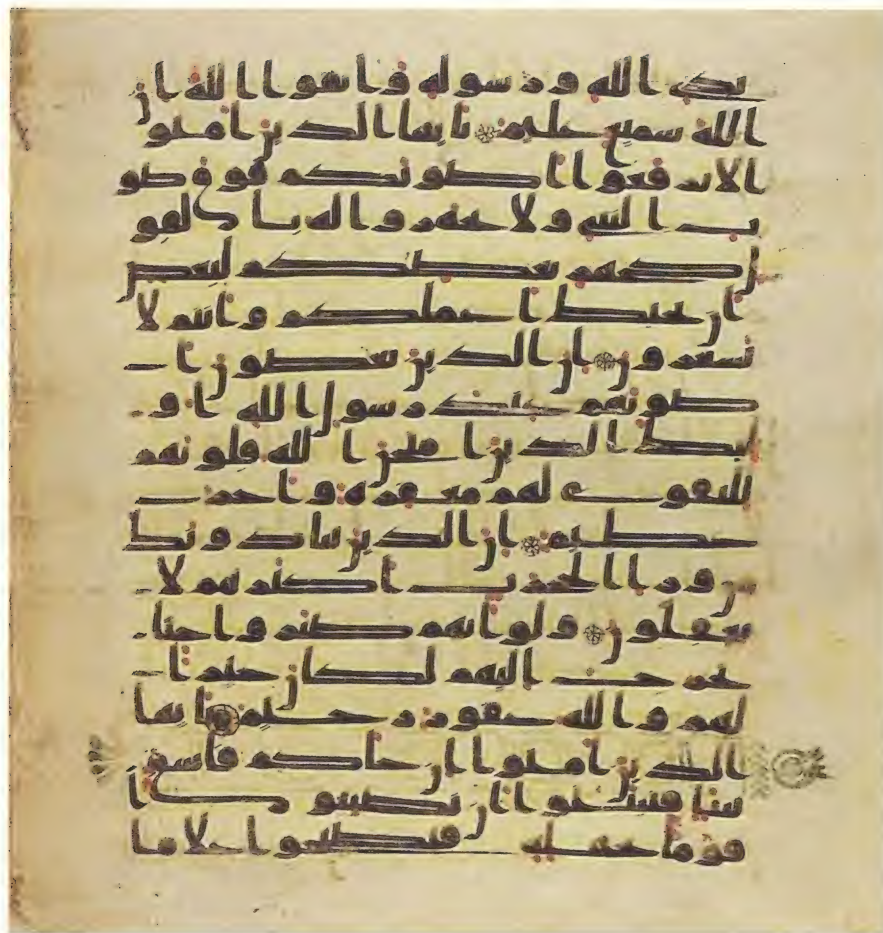 يدي الله ورسوله واتقوا الله ان
الله سميع عليم يايها الذين امنوا
لا ترفعوا اصوتكم فوق صو
ت النبي ولا تجهروا له بالقو
ل كجهر بعضكم لبعض
ان تحبط اعملكم وانتم لا
تشعرون ان الذين يغضون ا
صوتهم عند رسول الله او
لئك الذين امتحن الله قلوبهم
للتقوى لهم مغفرة واجر
عظيم ان الذين ينادونك
من ورا الحجرت اكثرهم لا
يعقلون ولو انهم صبروا حتى
تخرج اليهم لكان خيرا
لهم والله غفور رحيم يايها
الذين امنوا ان جاكم فاسق
بنبا فتبينوا ان تصيبوا
قوما بجهلة فتصبحوا على ما